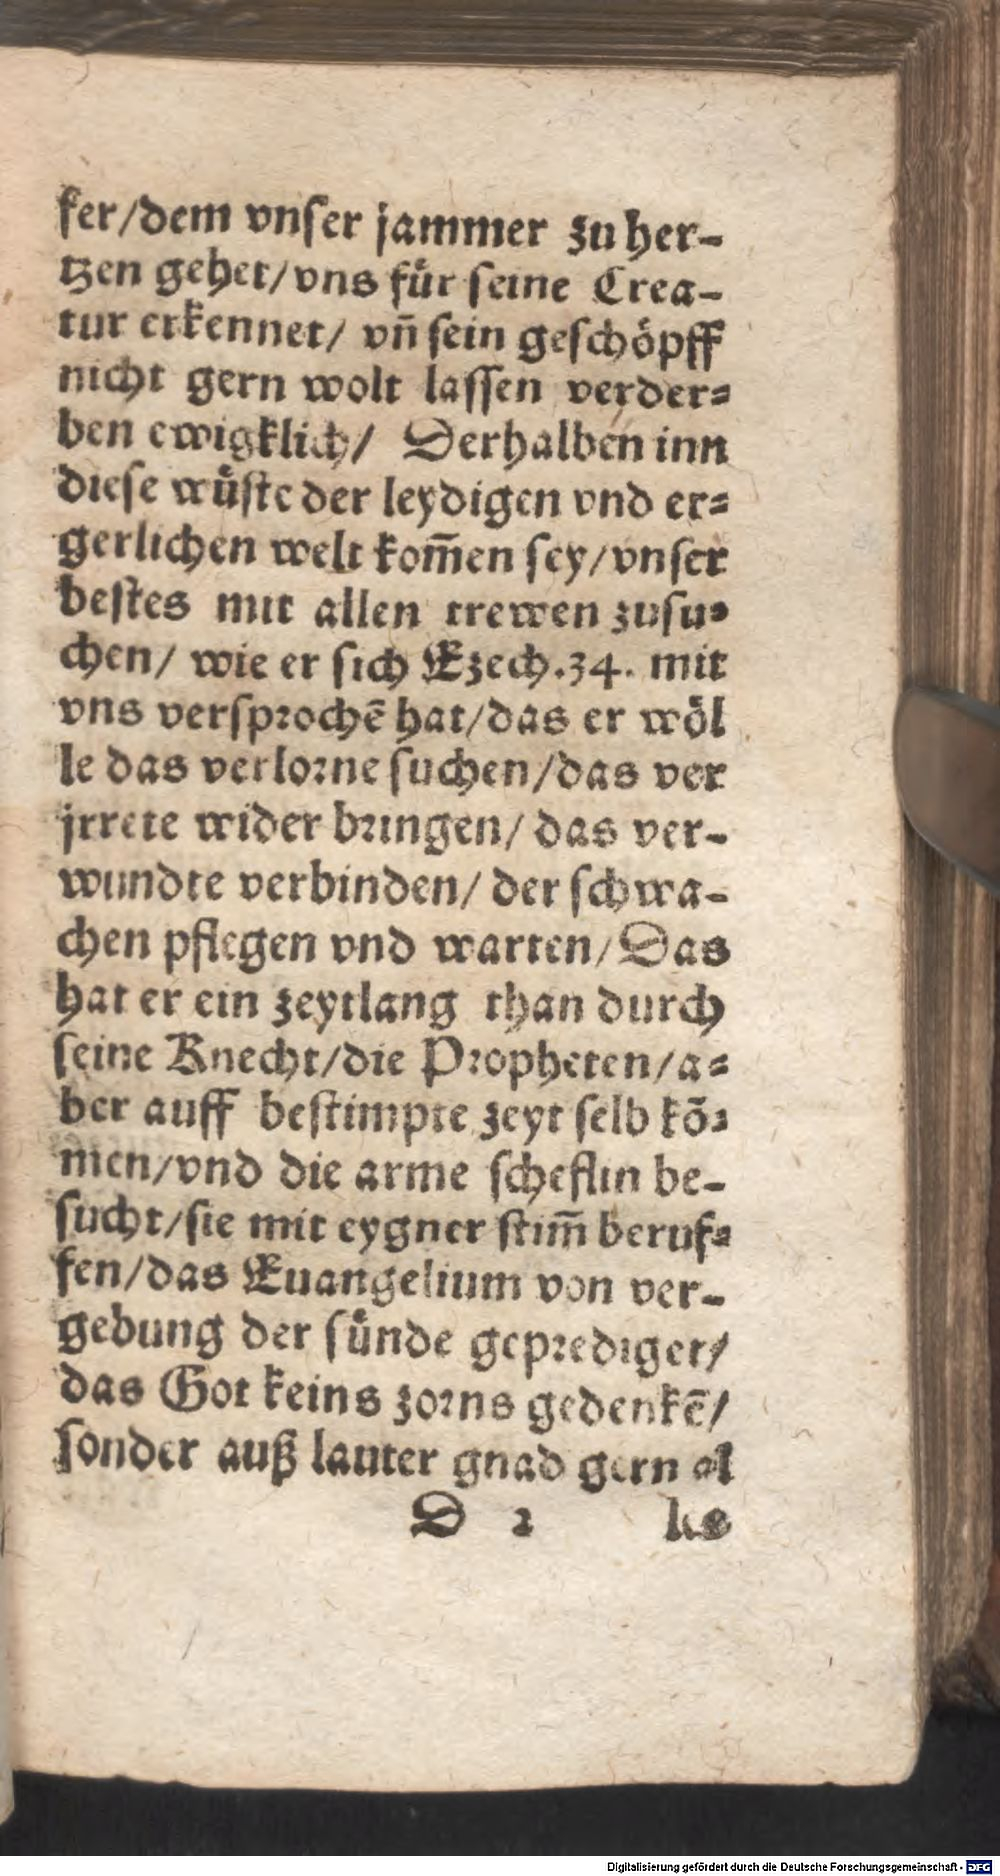 ker/dem vnser jammer zu her-
tzen gehet/vns für seine Crea-
tur erkennet/ vñ sein geschöpff
nicht gern wolt lassen verder-
ben ewigklich/ Derhalben inn
diese wüste der leydigen vnd er-
gerlichen welt kom̃en sey/vnser
bestes mit allen trewen zusu-
chen/ wie er sich Ezech.34. mit
vns versprochẽ hat/das er wöl
le das verlorne suchen/das ver
jrrete wider bringen/ das ver-
wundte verbinden/ der schwa-
chen pflegen vnd warten/Das
hat er ein zeytlang than durch
seine Knecht/die Propheten/a-
ber auff bestimpte zeyt selb kõ-
men/vnd die arme scheflin be-
sucht/sie mit eygner stim̃ beruf-
fen/das Euangelium von ver-
gebung der sünde geprediget/
das Got keins zorns gedenkẽ/
sonder auß lauter gnad gern al
D 2 les
Digitalisierung gefördert durch die Deutsche Forschungsgemeinschaft - DFG